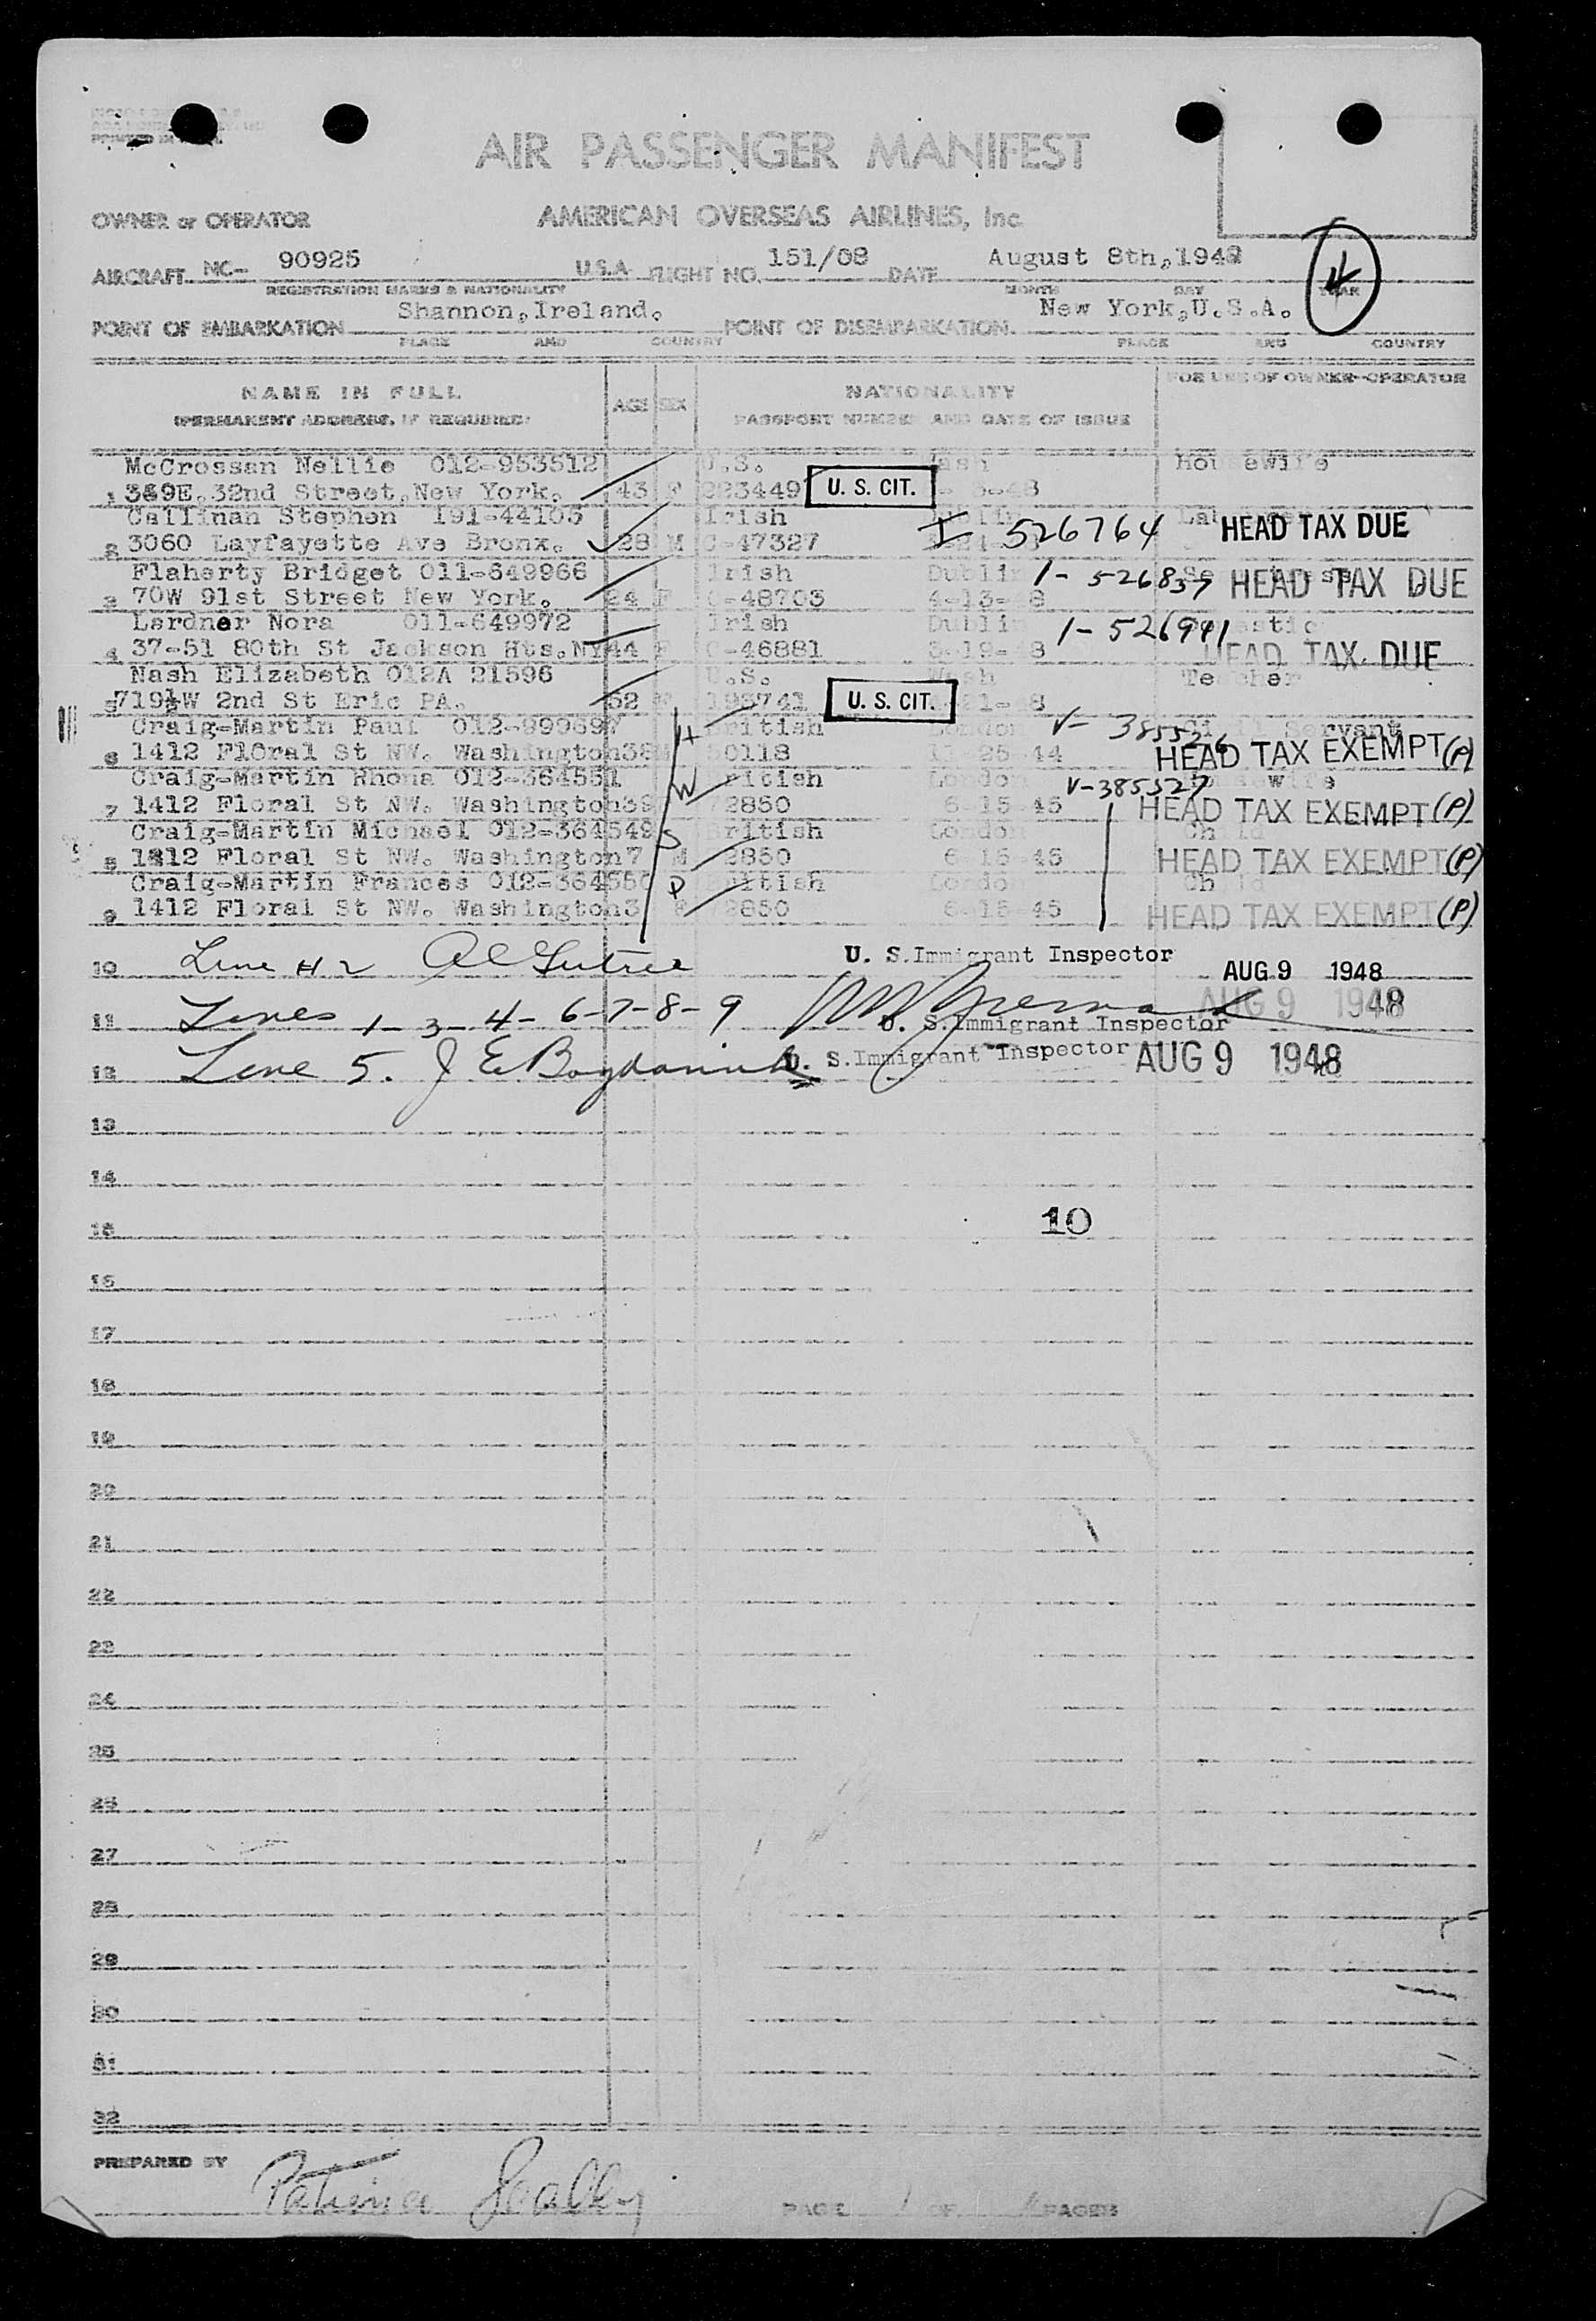 AIR PASSENGER MANIFEST
OWNER or OPERATOR AMERICAN OVERSEAS AIRLINES, Inc
AIRCRAFT NC- 90925 U.S.A. FLIGHT NO. 151/08 DATE August 8th,1948
REGISTRATION MARKS & NATIONALITY MONTH DAY YEAR
POINT OF EMBARKATION Shannon,Ireland. POINT OF DISEMBARKATION New York,U.S.A.
PLACE AND COUNTRY PLACE AND COUNTRY
NAME IN FULL AGE SEX NATIONALITY FOR USE OF OWNER-OPERATOR
(PERMANENT ADDRESS, IF REQUIRED) PASSPORT NUMBER AND DATE OF ISSUE
McCrossan Nellie 012-953512 U.S. Wash Housewife
1 369E.32nd Street,New York. 43 F 223449 U. S. CIT. -48
Callinan Stephen 191-44105 Irish I 526764 HEAD TAX DUE
2 3060 Layfayette Ave Bronx. 28 M C-47327
Flaherty Bridget 011-649966 Irish Dublin 1-526837 HEAD TAX DUE
3 70W 91st Street New York. 24 F C-48703 4-13-48
Lardner Nora 011-649972 Irish Dublin 1-526941
4 37-51 80th St Jackson Hts.NY 44 F C-46881 3-19-48 HEAD TAX DUE
Nash Elizabeth 012A 21596 U.S. Wash Teacher
5 719½W 2nd St Erie PA. 52 U. S. CIT.
Craig-Martin Paul 012-999697 H British London V-385526 Civil Servant
6 1412 FlOral St NW. Washington 38 M 50118 25-44 HEAD TAX EXEMPT (P)
Craig-Martin Rhona 012-364551 W British London V-385527
7 1412 Floral St NW. Washington 39 2850 6-15-45 HEAD TAX EXEMPT (P)
Craig-Martin Michael 012-364549 S British London Child
8 1412 Floral St NW. Washington 7 M 2850 6-15-45 HEAD TAX EXEMPT (P)
Craig-Martin Frances 012-364550 D British London Child
9 1412 Floral St NW. Washington 3 F 2850 6-15-45 HEAD TAX EXEMPT (P)
10 Line # 2 U. S.Immigrant Inspector AUG 9 1948
11 Lines 1-3-4-6-7-8-9 U. S.Immigrant Inspector AUG 9 1948
12 Line 5. U. S.Immigrant Inspector AUG 9 1948
13
14
15 10
16
17
18
19
20
21
22
23
24
25
26
27
28
29
30
31
32
PREPARED BY
PAGE 1 OF PAGES